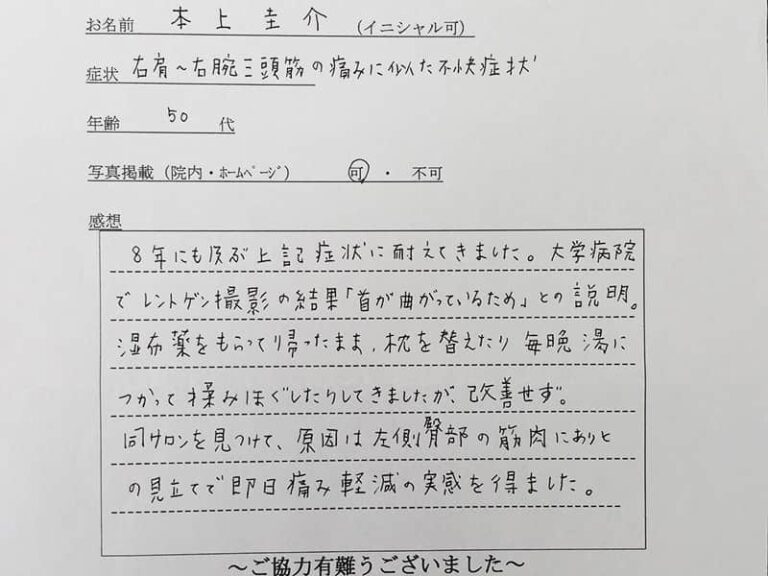 お名前 本上圭介 (イニシャル可)
症状 右肩～右腕三頭筋の痛みに似た不快症状
年齢 50 代
写真掲載(院内・ホームページ) 可 ・ 不可
感想
8年にも及ぶ上記症状に耐えてきました。大学病院
でレントゲン撮影の結果「首が曲がっているため」との説明。
湿布薬をもらって帰ったまま、枕を替えたり毎晩湯に
つかって揉みほぐしたりしてきましたが、改善せず。
同サロンを見つけて、原因は左側臀部の筋肉にありと
の見立てで即日痛み軽減の実感を得ました。
～ご協力有難うございました～